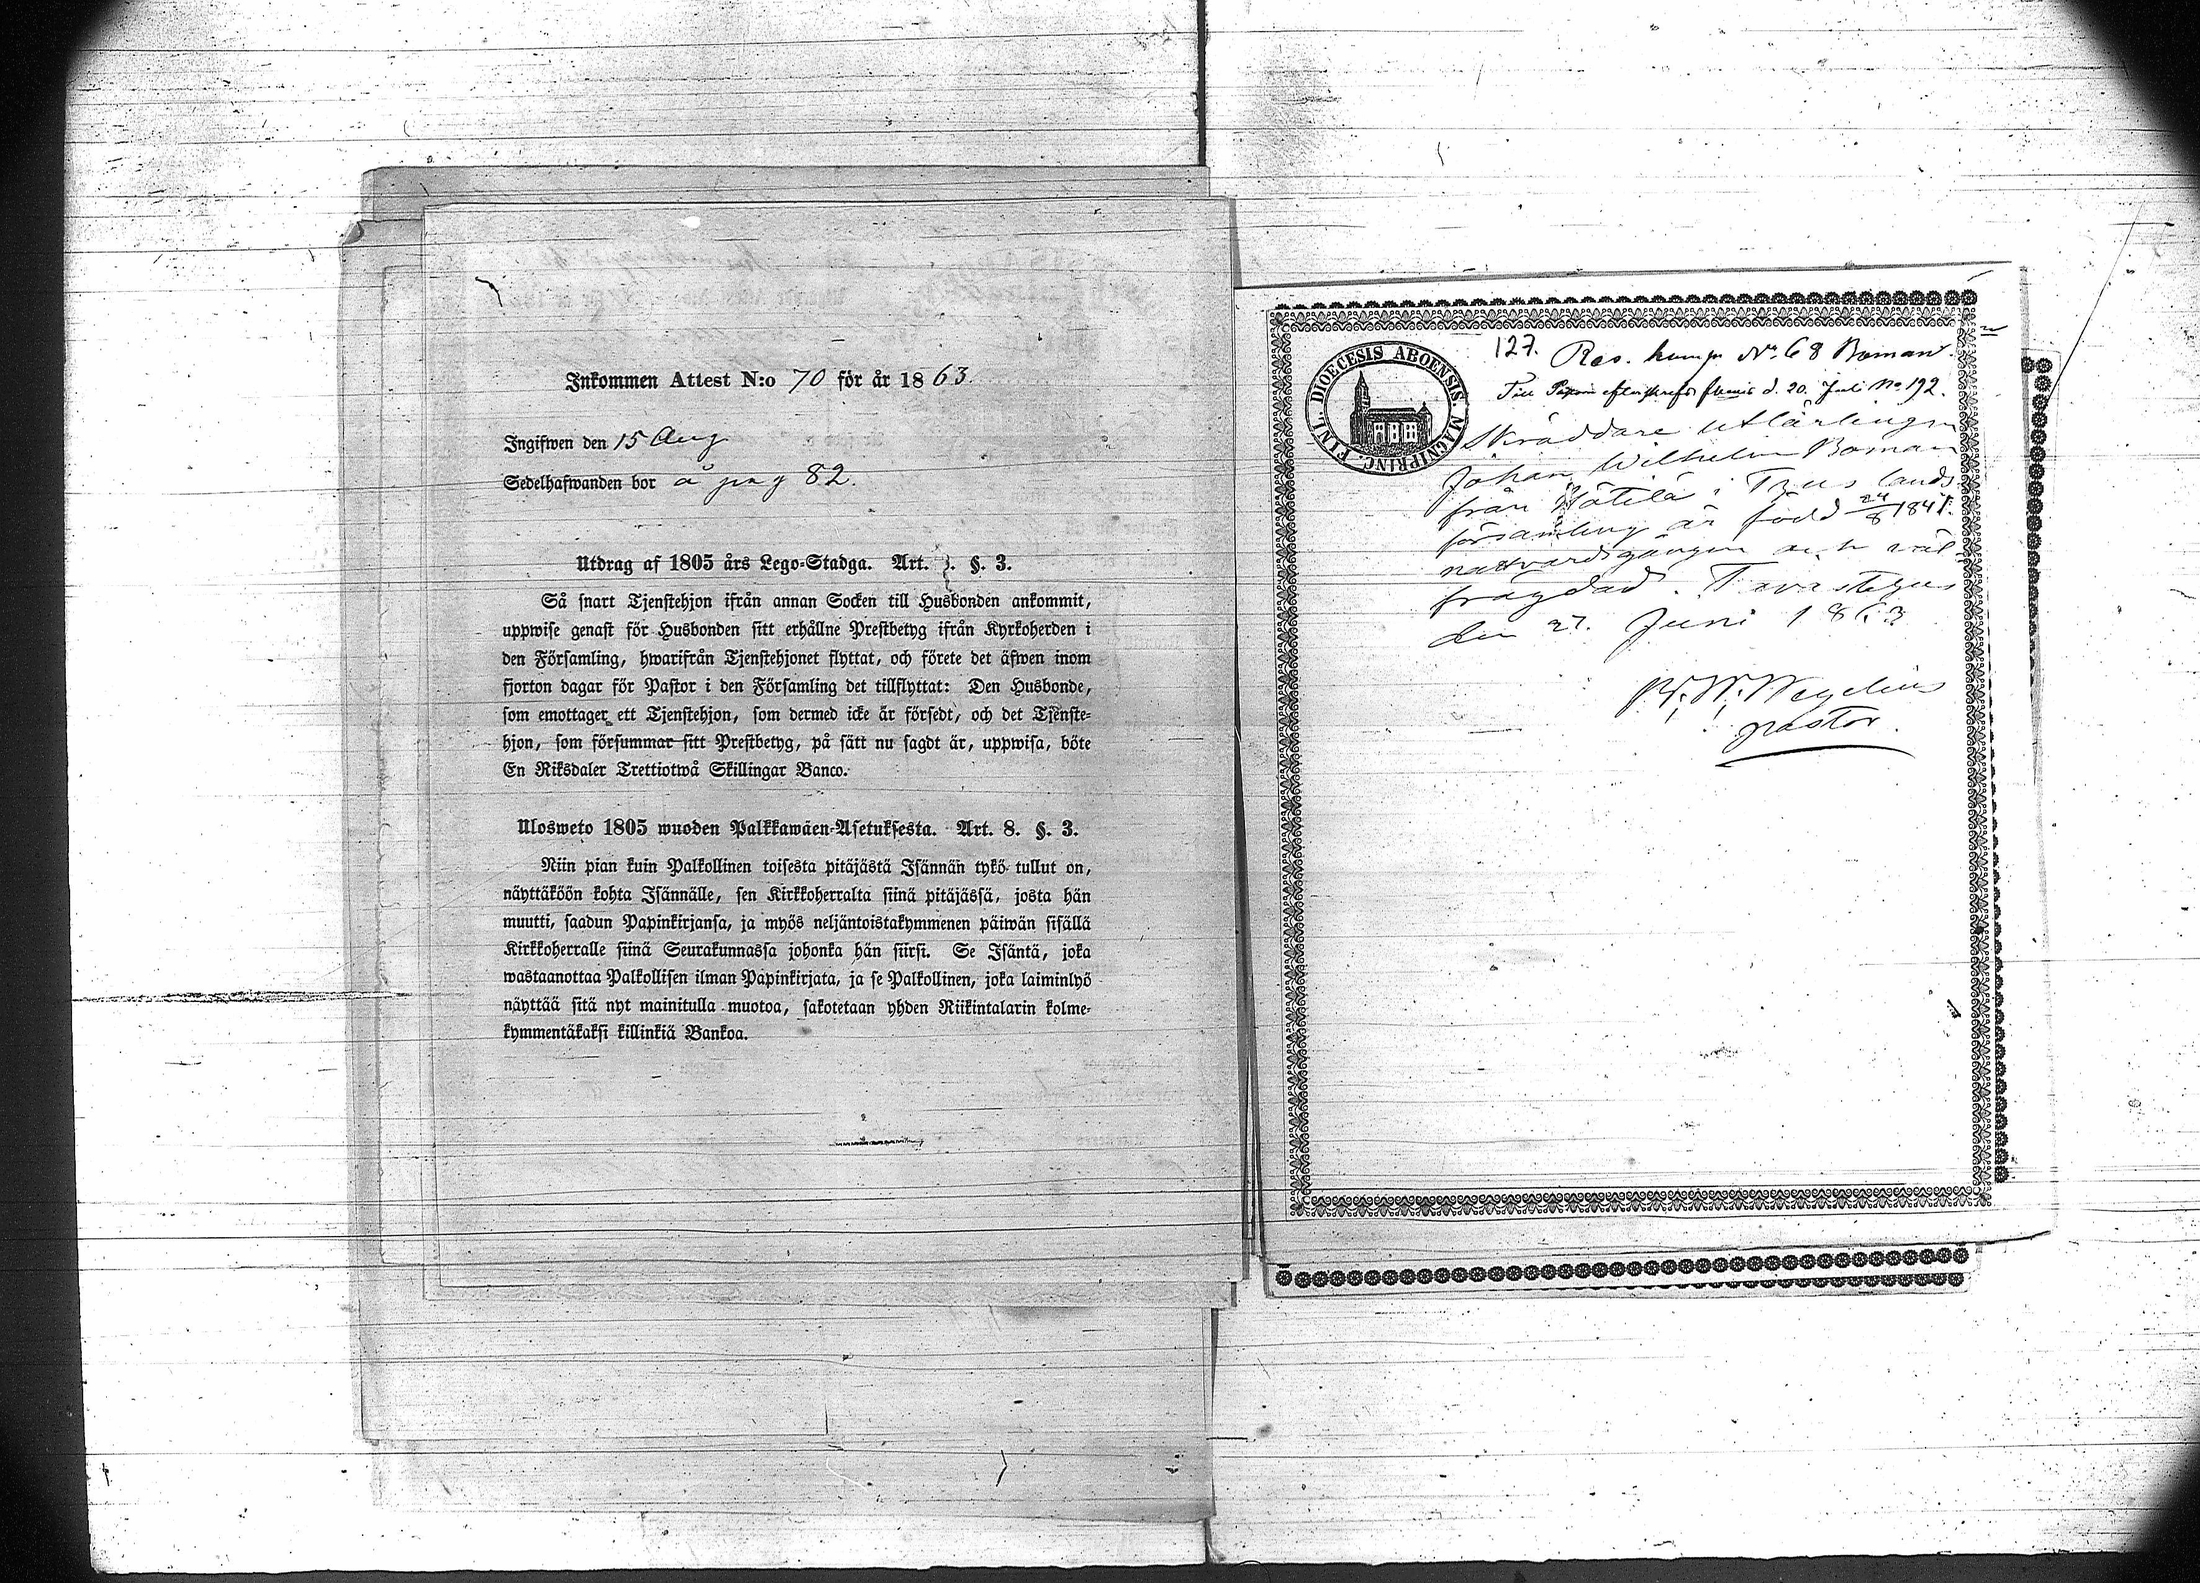 Inkommen Attest N:o 70 för år 1863.
Ingifwen den 15 Aug
Sedelhafwanden bor å pag 82.
Utdrag af 1805 års Lego-Stadga. Art. . §. 3.
Så snart Tjenstehjon ifrån annan Socken till Husbonden ankommit,
uppwise genast för Husbonden sitt erhållne Prestbetyg ifrån Kyrkoherden i
den Församling, hwarifrån Tjenstehjonet flyttat, och förete det äfwen inom
fjorton dagar för Pastor i den Församling det tillflyttat: Den Husbonde,
som emottager ett Tjenstehjon, som dermed icke är försedt, och det Tjenste-
hjon, som försummar sitt Prestbetyg, på sätt nu sagdt är, uppwisa, böte
En Riksdaler Trettiotwå Skillingar Banco.
Ulosweto 1805 wuoden Palkkawäen-Asetuksesta. Art. 8. §. 3.
Niin pian kuin Palkollinen toisesta pitäjästä Isännän tykö tullut on,
näyttäköön kohta Isännälle, sen Kirkkoherralta siinä pitäjässä, josta hän
muutti, saadun Papinkirjansa, ja myös neljäntoistakymmenen päiwän sisällä
Kirkkoherralle siinä Seurakunnassa johonka hän siirsi. Se Isäntä, joka
wastaanottaa Palkollisen ilman Papinkirjata, ja se Palkollinen, joka laiminlyö
näyttää sitä nyt mainitulla muotoa, sakotetaan yhden Riikintalarin kolme-
kymmentäkaksi killinkiä Bankoa.
FINL. DIOECESIS ABOENSIS. MAGNIPRINC.
127. Res. No. 68 Boman.
Till d. 20. Juli No 192.
Skräddare utlärlingen
Johan Wilhelm Boman
från Hätilä i Tvus lands
församling är född 24/8 1841.
nattvardsgången och väl
frägdad. Tavastehus
den 27. Juni 1863
W. Wegelius
pastor.